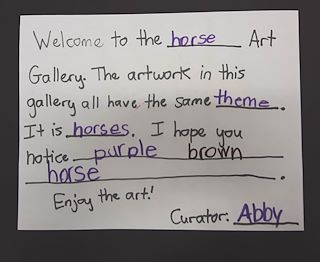 Welcome to the horse Art
Gallery. The artwork in this
gallery all have the same theme.
It is horses. I hope you
notice purple brown
horse.
Enjoy the art!
Curator: Abby